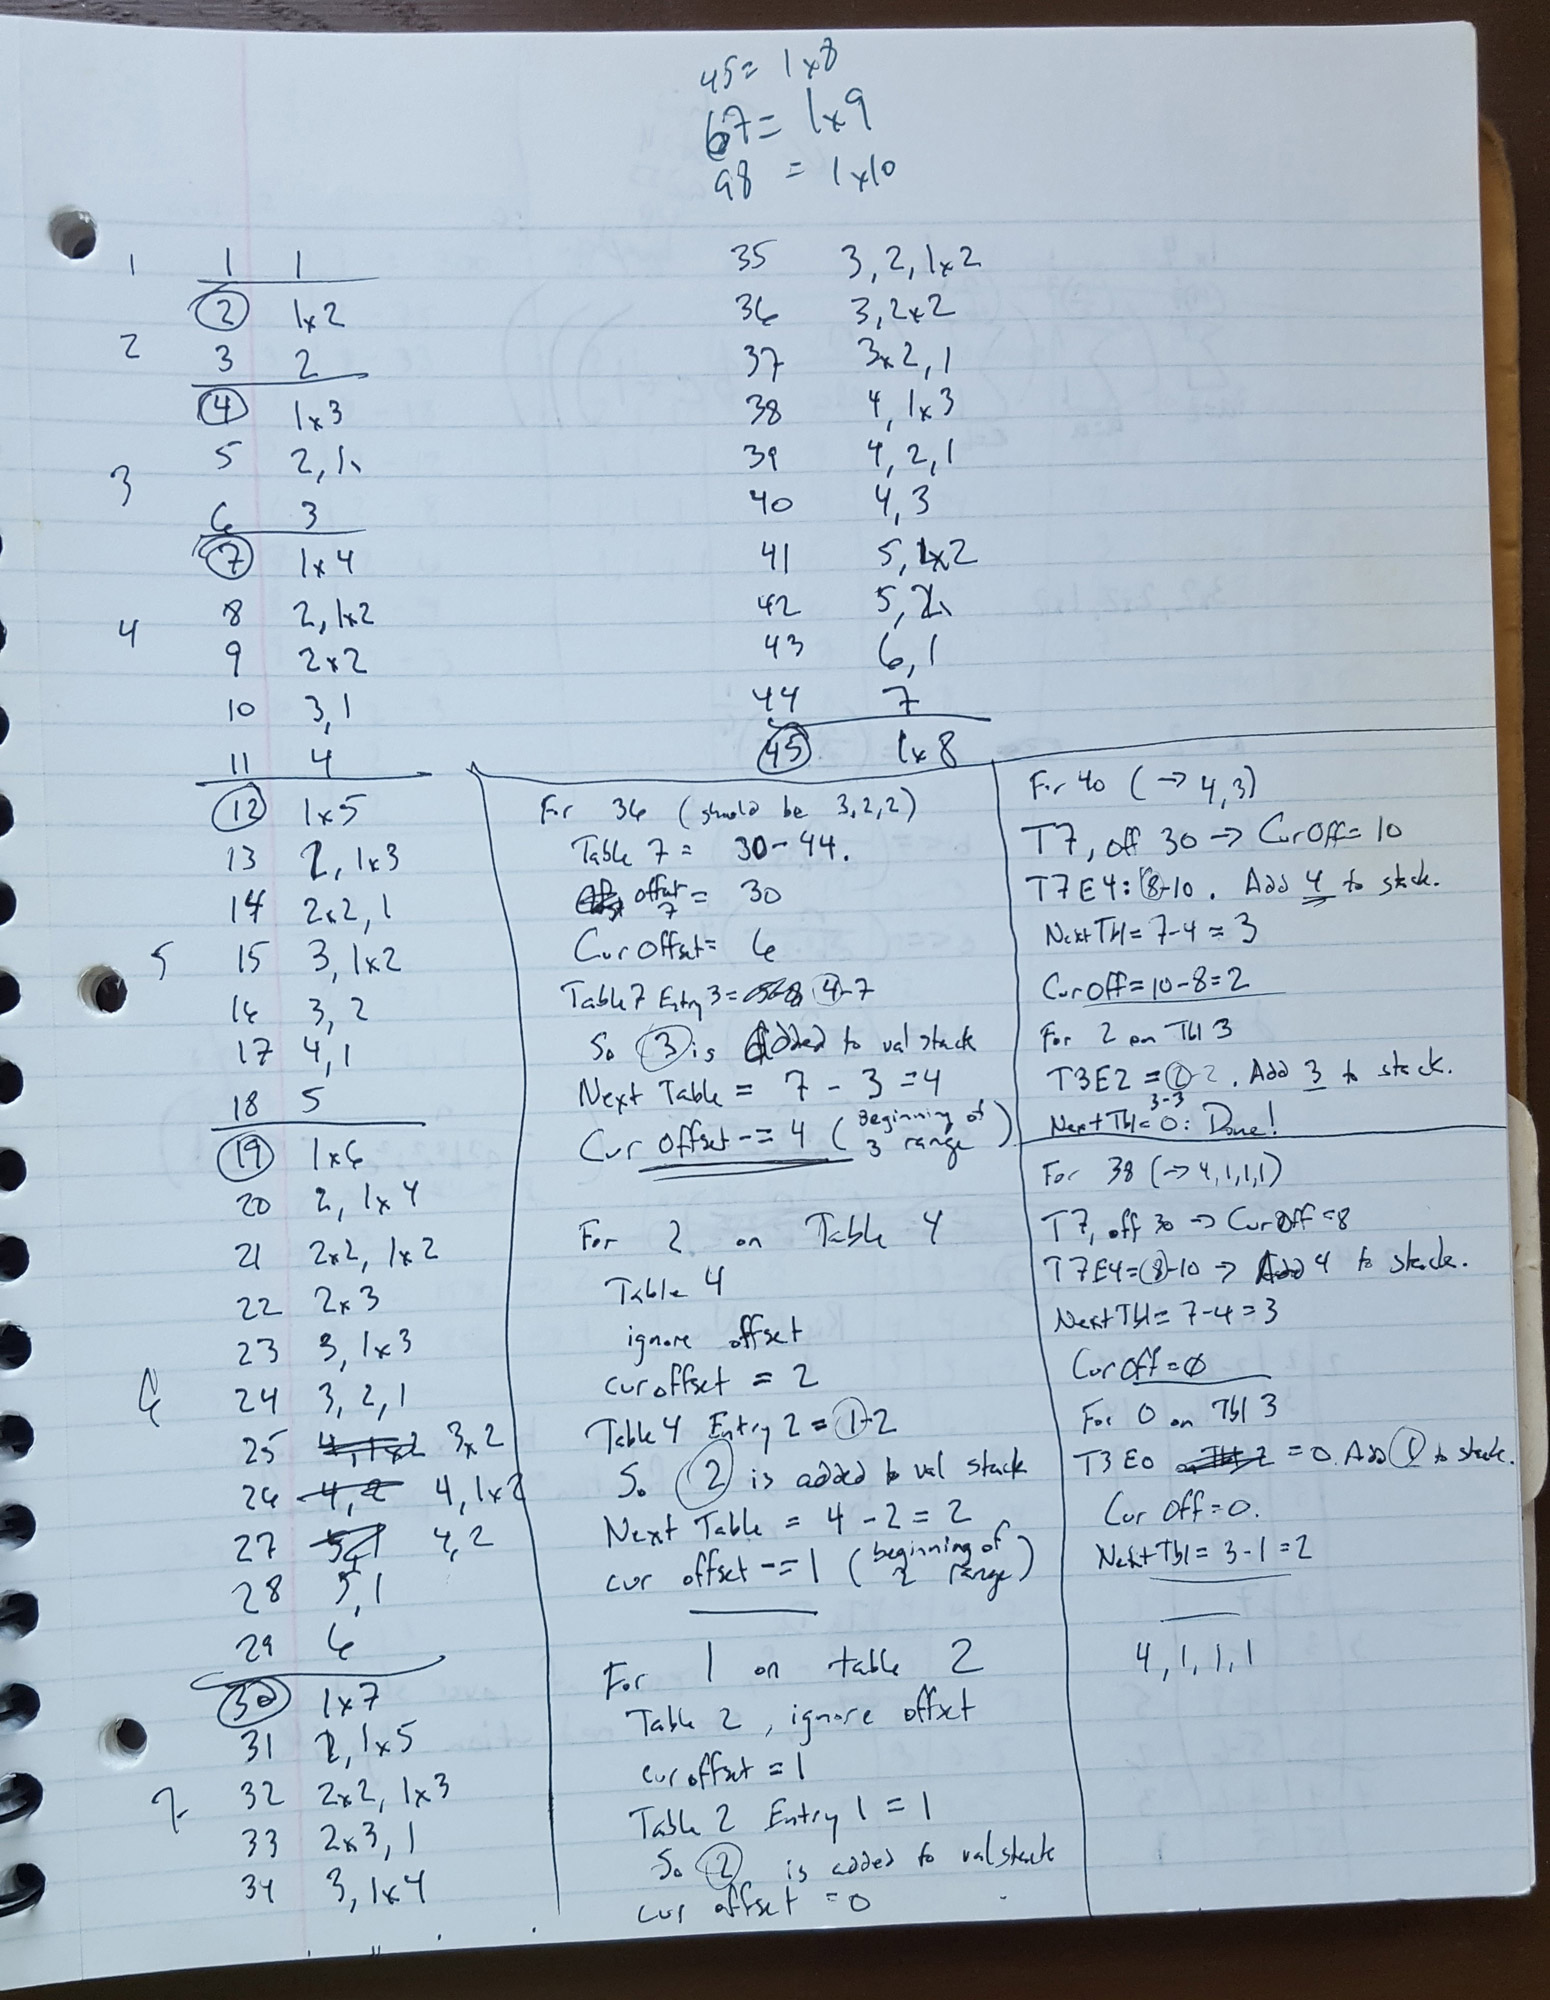 45= 1x8
67= 1x9
98 = 1x10
1 1 1
2 1x2
2
3 2
4 1x3
5 2, 1
3
6 3
7 1x4
8 2, 1x2
4
9 2x2
10 3,1
11 4
12 1x5
13 2, 1x3
14 2x2, 1
5 15 3, 1x2
16 3, 2
17 4, 1
18 5
19 1x6
20 2, 1x4
21 2x2, 1x2
22 2x3
23 3, 1x3
6 24 3, 2, 1
25 4, 1x2 3x2
26 4, 2 4, 1x2
27 4, 2
28 5, 1
29 6
30 1x7
31 2, 1x5
7 32 2x2, 1x3
33 2x3, 1
34 3, 1x4
35 3, 2, 1x2
36 3, 2x2
37 3x2, 1
38 4, 1x3
39 4, 2, 1
40 4, 3
41 5, 1x2
42 5, 2
43 6, 1
44 7
45 1x8
For 36 (should be 3,2,2)
Table 7 = 30-44.
offset 7 = 30
Cur Offset= 6
Table 7 Entry 3 = 4-7
So 3 is added to val stack
Next Table = 7 - 3 = 4
Cur offset -= 4 (Beginning of 3 range)
For 2 on Table 4
Table 4
ignore offset
cur offset = 2
Table 4 Entry 2 = 1-2
So 2 is added to val stack
Next Table = 4 - 2 = 2
cur offset -= 1 (beginning of 2 range)
For 1 on table 2
Table 2, ignore offset
cur offset = 1
Table 2 Entry 1 = 1
So 2 is added to val stack
cur offset = 0
For 40 (→ 4,3)
T7, off 30 → CurOff= 10
T7E4: 8-10. Add 4 to stack.
Next Tbl = 7-4 = 3
CurOff = 10-8=2
For 2 on Tbl 3
T3E2 = 2-2. Add 3 to stack.
3-3
Next Tbl = 0: Done!
For 38 (→ 4,1,1,1)
T7, off 30 → CurOff =8
T7E4=8-10 → Add 4 to stack.
Next Tbl = 7-4 = 3
Cur Off = 0
For 0 on Tbl 3
T3E0 = 0. Add 1 to stack.
Cur Off = 0.
Next Tbl = 3-1 = 2
4, 1, 1, 1